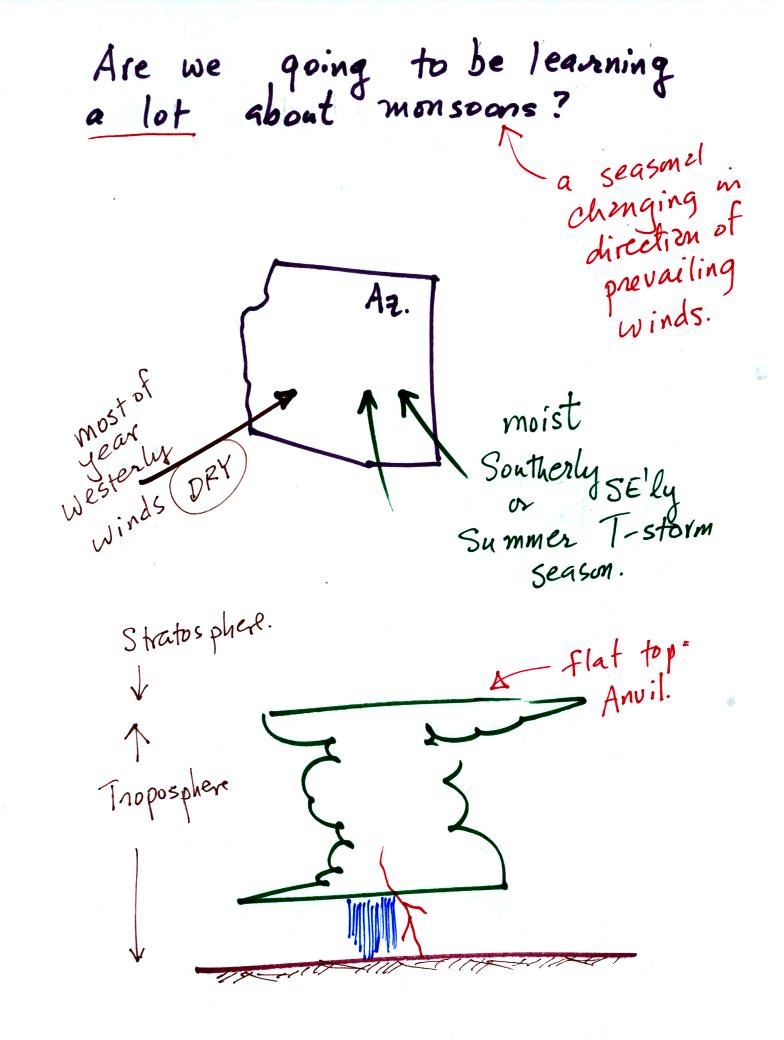 Are we going to be learning
a lot about monsoons?
a seasonal
changing in
direction of
prevailing
winds.
Az.
most of
year
westerly
winds DRY
moist
Southerly
or SE'ly
Summer T-storm
season.
Stratosphere.
flat top=
Anvil.
Troposphere